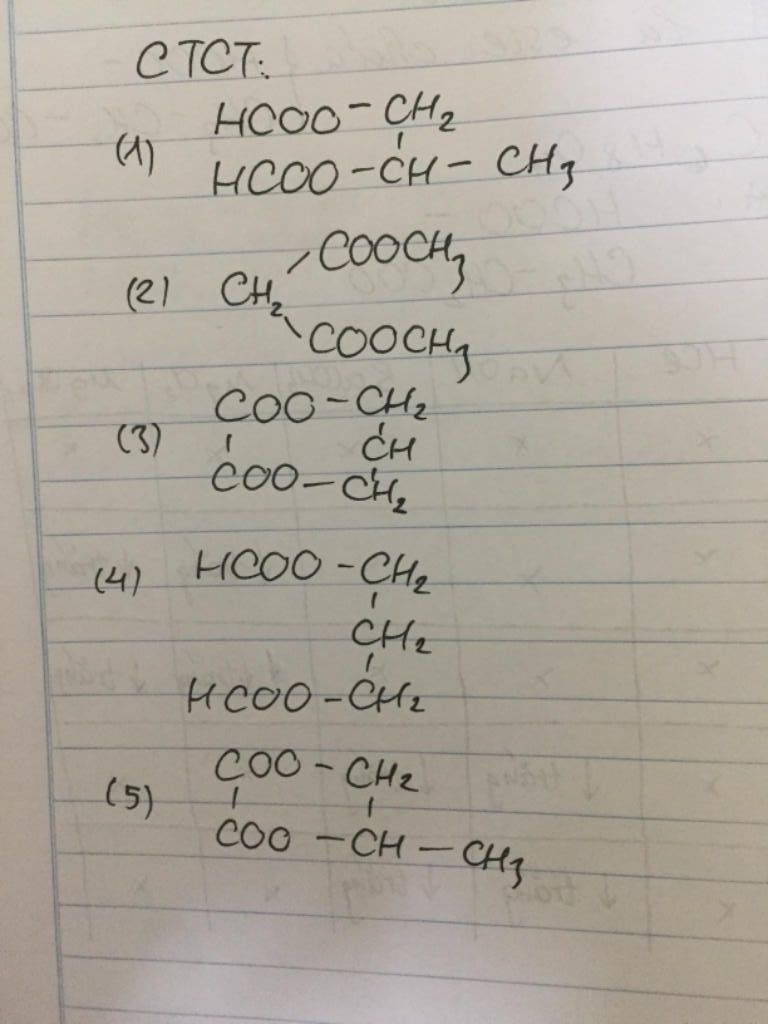 CTCT:
(1) HCOO - CH2
HCOO - CH - CH3
(2) CH2
COOCH3
COOCH3
(3) COO - CH2
CH
COO - CH2
(4) HCOO - CH2
CH2
HCOO - CH2
(5) COO - CH2
COO - CH - CH3